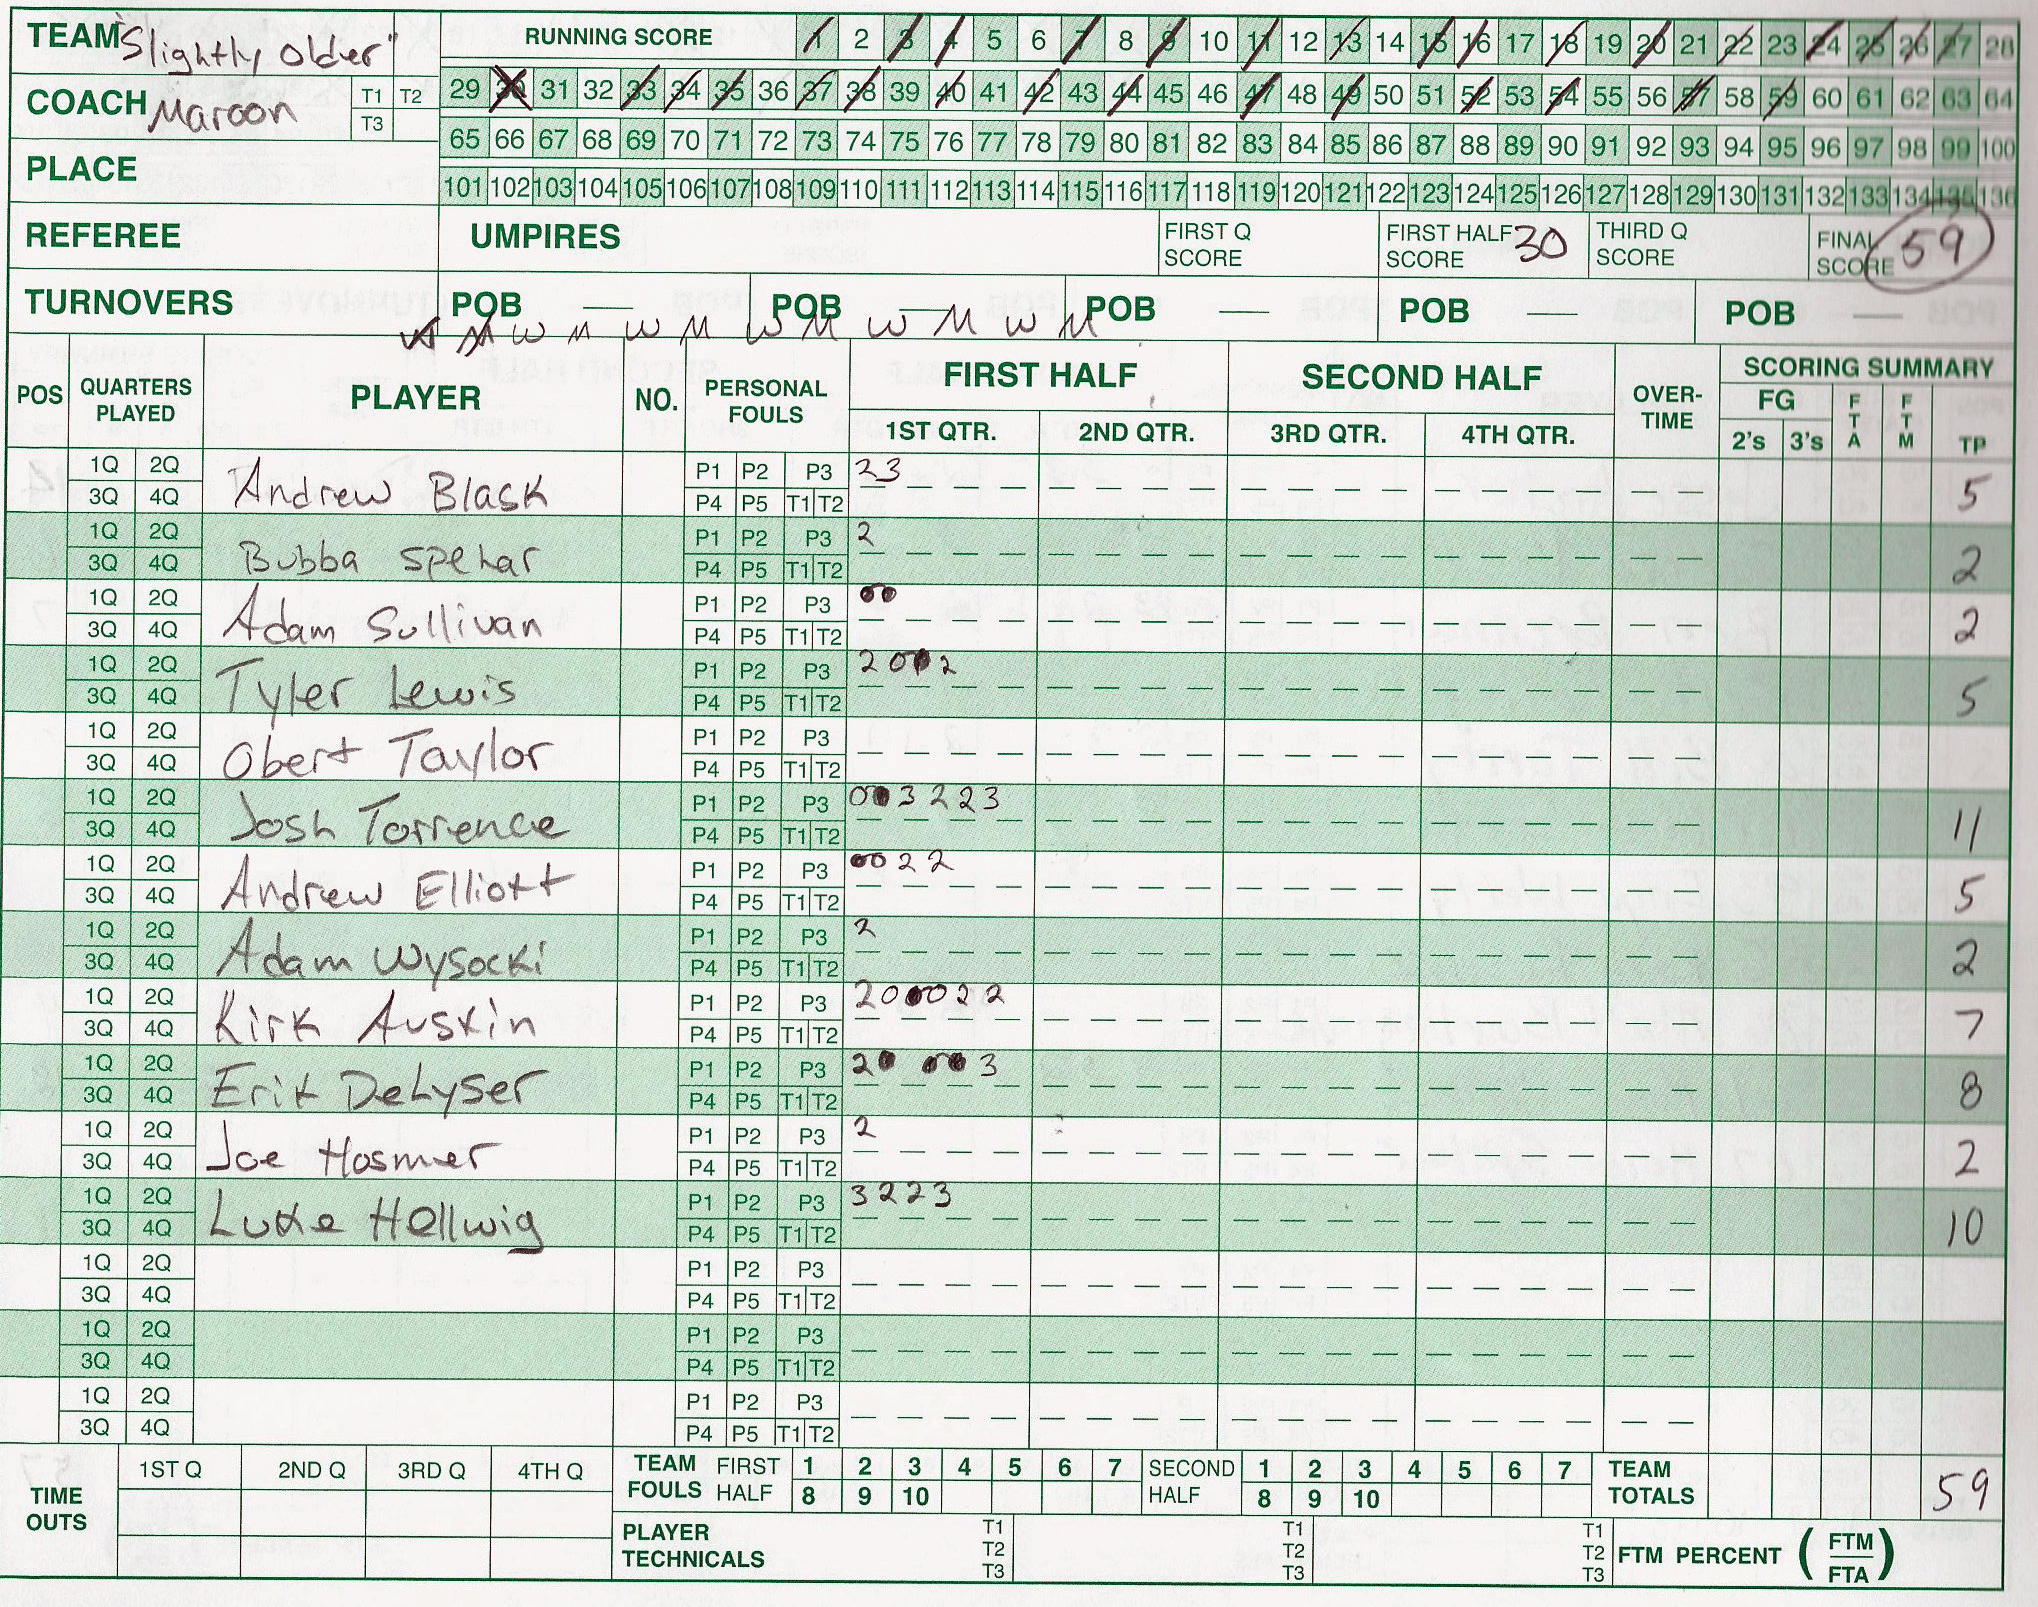 TEAM "Slightly Older" RUNNING SCORE 1 2 3 4 5 6 7 8 9 10 11 12 13 14 15 16 17 18 19 20 21 22 23 24 25 26 27 28
COACH Maroon T1 T2 T3 29 30 31 32 33 34 35 36 37 38 39 40 41 42 43 44 45 46 47 48 49 50 51 52 53 54 55 56 57 58 59 60 61 62 63 64
65 66 67 68 69 70 71 72 73 74 75 76 77 78 79 80 81 82 83 84 85 86 87 88 89 90 91 92 93 94 95 96 97 98 99 100
PLACE 101 102 103 104 105 106 107 108 109 110 111 112 113 114 115 116 117 118 119 120 121 122 123 124 125 126 127 128 129 130 131 132 133 134 135 136
REFEREE UMPIRES FIRST Q SCORE FIRST HALF SCORE 30 THIRD Q SCORE FINAL SCORE 59
TURNOVERS POB — POB — POB — POB — POB —
W M W M W M W M W M
POS QUARTERS PLAYED PLAYER NO. PERSONAL FOULS FIRST HALF SECOND HALF OVER-TIME SCORING SUMMARY
1ST QTR. 2ND QTR. 3RD QTR. 4TH QTR. FG 2's 3's FTA FTM TP
1Q 2Q P1 P2 P3 23
3Q 4Q Andrew Blask P4 P5 T1 T2 5
1Q 2Q P1 P2 P3 2
3Q 4Q Bubba Spehar P4 P5 T1 T2 2
1Q 2Q P1 P2 P3
3Q 4Q Adam Sullivan P4 P5 T1 T2 2
1Q 2Q P1 P2 P3 2 0 0 2
3Q 4Q Tyler Lewis P4 P5 T1 T2 5
1Q 2Q P1 P2 P3
3Q 4Q Obert Taylor P4 P5 T1 T2
1Q 2Q P1 P2 P3 0 0 3 2 2 3
3Q 4Q Josh Torrence P4 P5 T1 T2 11
1Q 2Q P1 P2 P3 0 0 2 2
3Q 4Q Andrew Elliott P4 P5 T1 T2 5
1Q 2Q P1 P2 P3 2
3Q 4Q Adam Wysocki P4 P5 T1 T2 2
1Q 2Q P1 P2 P3 2 0 0 0 0 2 2
3Q 4Q Kirk Auskin P4 P5 T1 T2 7
1Q 2Q P1 P2 P3 2 0 0 0 3
3Q 4Q Erik DeLyser P4 P5 T1 T2 8
1Q 2Q P1 P2 P3 2
3Q 4Q Joe Hosmer P4 P5 T1 T2 2
1Q 2Q P1 P2 P3 3 2 2 3
3Q 4Q Luke Hellwig P4 P5 T1 T2 10
1Q 2Q P1 P2 P3
3Q 4Q P4 P5 T1 T2
1Q 2Q P1 P2 P3
3Q 4Q P4 P5 T1 T2
1Q 2Q P1 P2 P3
3Q 4Q P4 P5 T1 T2
TIME OUTS 1ST Q 2ND Q 3RD Q 4TH Q TEAM FOULS FIRST HALF 1 2 3 4 5 6 7 8 9 10 SECOND HALF 1 2 3 4 5 6 7 8 9 10 TEAM TOTALS 59
PLAYER TECHNICALS T1 T2 T3 T1 T2 T3 T1 T2 T3 FTM PERCENT (FTM/FTA)